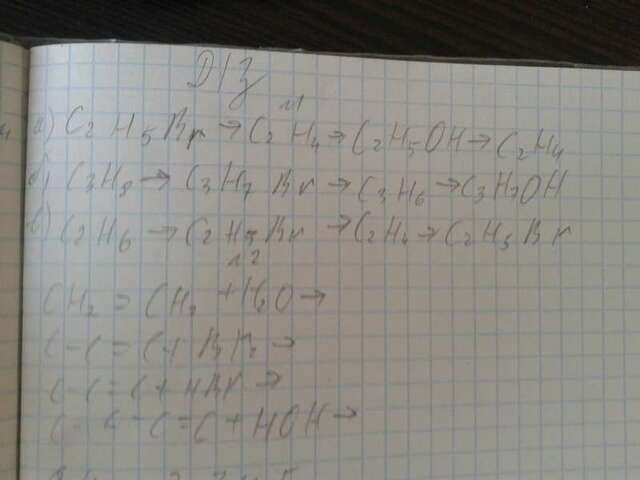 Д/З
№1
а) C2H5Br → C2H4 → C2H5OH → C2H4
б) C3H8 → C3H7Br → C3H6 → C3H7OH
в) C2H6 → C2H5Br → C2H4 → C2H5Br
№2
CH2 = CH2 + H2O →
C-C=C + Br2 →
C-C=C + HBr →
C-C-C=C + HOH →